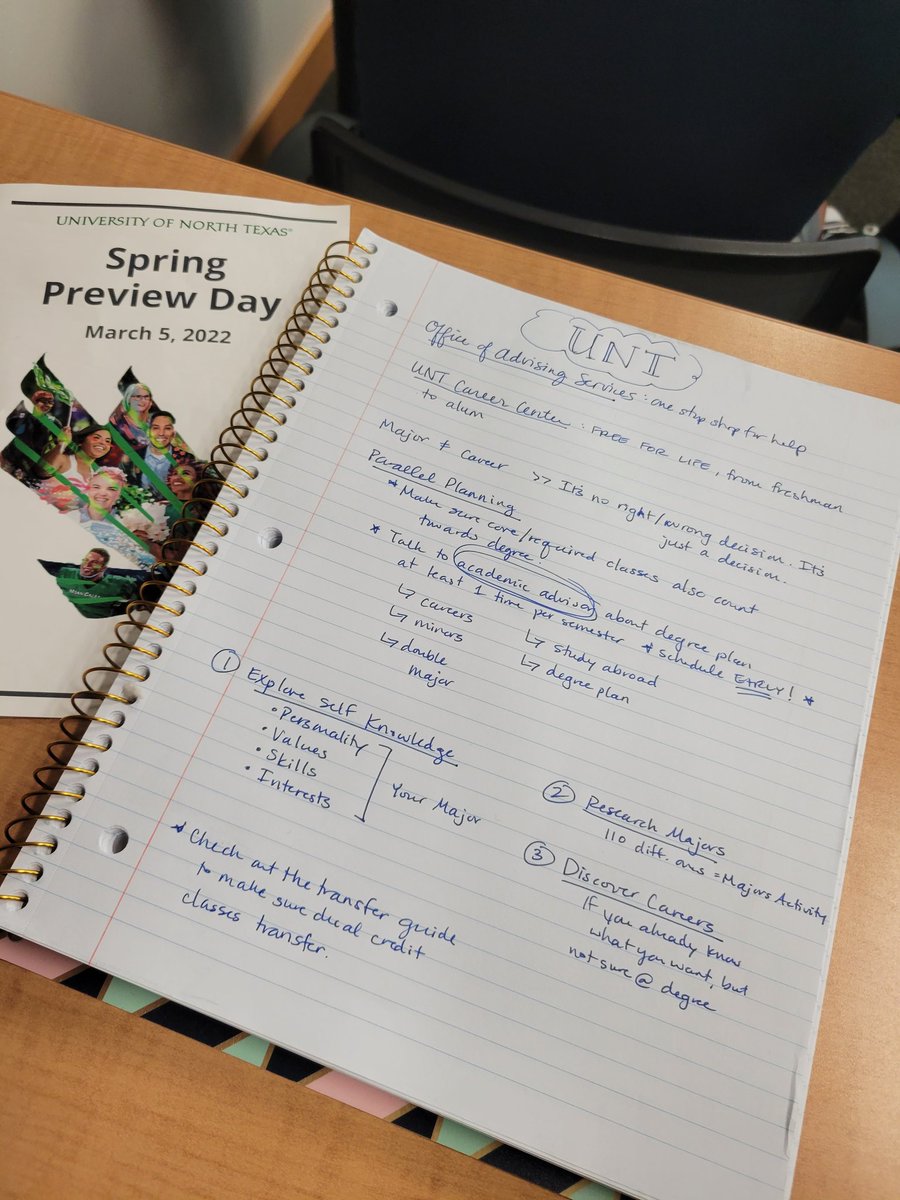 UNIVERSITY OF NORTH TEXAS®
Spring
Preview Day
March 5, 2022
MEAN GREEN
UNT
Office of Advising Services: one stop shop for help
UNT Career Center: FREE FOR LIFE, from freshman
to alum
Major ≠ Career >> It's no right/wrong decision. It's
just a decision.
Parallel Planning
* Make sure core/required classes also count
towards degree!
* Talk to academic advisor about degree plan
at least 1 time per semester * schedule EARLY! *
↳ careers
↳ minors
↳ double
major
↳ study abroad
↳ degree plan
① Explore Self Knowledge
• Personality
• Values
• Skills
• Interests
Your Major
② Research Majors
110 diff. ones = Majors Activity
③ Discover Careers
If you already know
what you want, but
not sure @ degree
* Check out the transfer guide
to make sure dual credit
classes transfer.